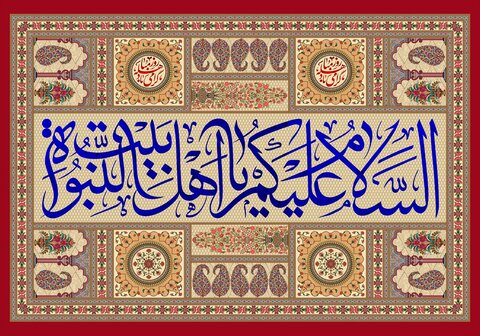 السَّلامُ عَلَیکُم یا اَهلَ بَیتِ النَّبُوَّة